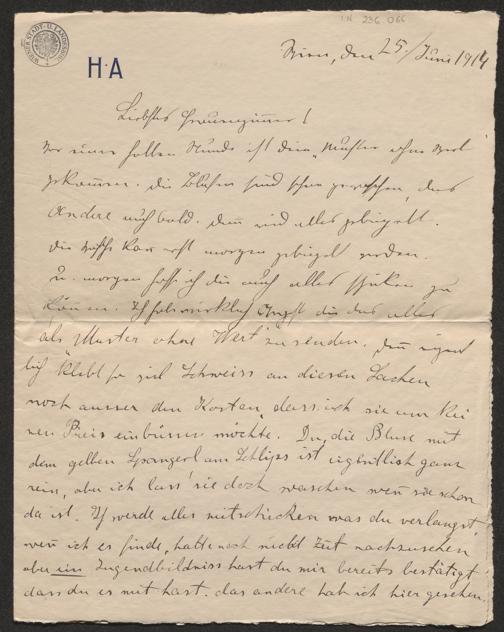 WIENER STADT- U. LANDESBIBL.
I.N. 236.066
H·A
Wien, den 25/Juni 1914
Liebstes Frauenzimmer!
Vor einer halben Stunde ist dein „Muster ohne Wert
gekommen. Die Blusen sind schon gewaschen, das
Andere auch bald. Dann wird alles gebügelt.
Die Wäsche kann erst morgen gebügelt werden.
U. morgen hoff ich dir auch alles schicken zu
können. Ich hab wirklich Angst dir das alles
als Muster ohne Wert zu senden. Denn eigent
lich klebt so viel Schweiss an diesen Sachen
noch ausser den Kosten, dass ich sie um kei
nen Preis einbüssen möchte. Du, die Bluse mit
dem gelben am Schlips ist eigentlich ganz
rein, aber ich lass' sie doch waschen wenn sie schon
da ist. Ich werde alles mitschicken was du verlangst,
wenn ich es finde, hatte noch nicht Zeit nachzusehen
aber ein Jugendbildniss hast du mir bereits bestätigt
dass du es mit hast. das andere hab ich hier gesehen.